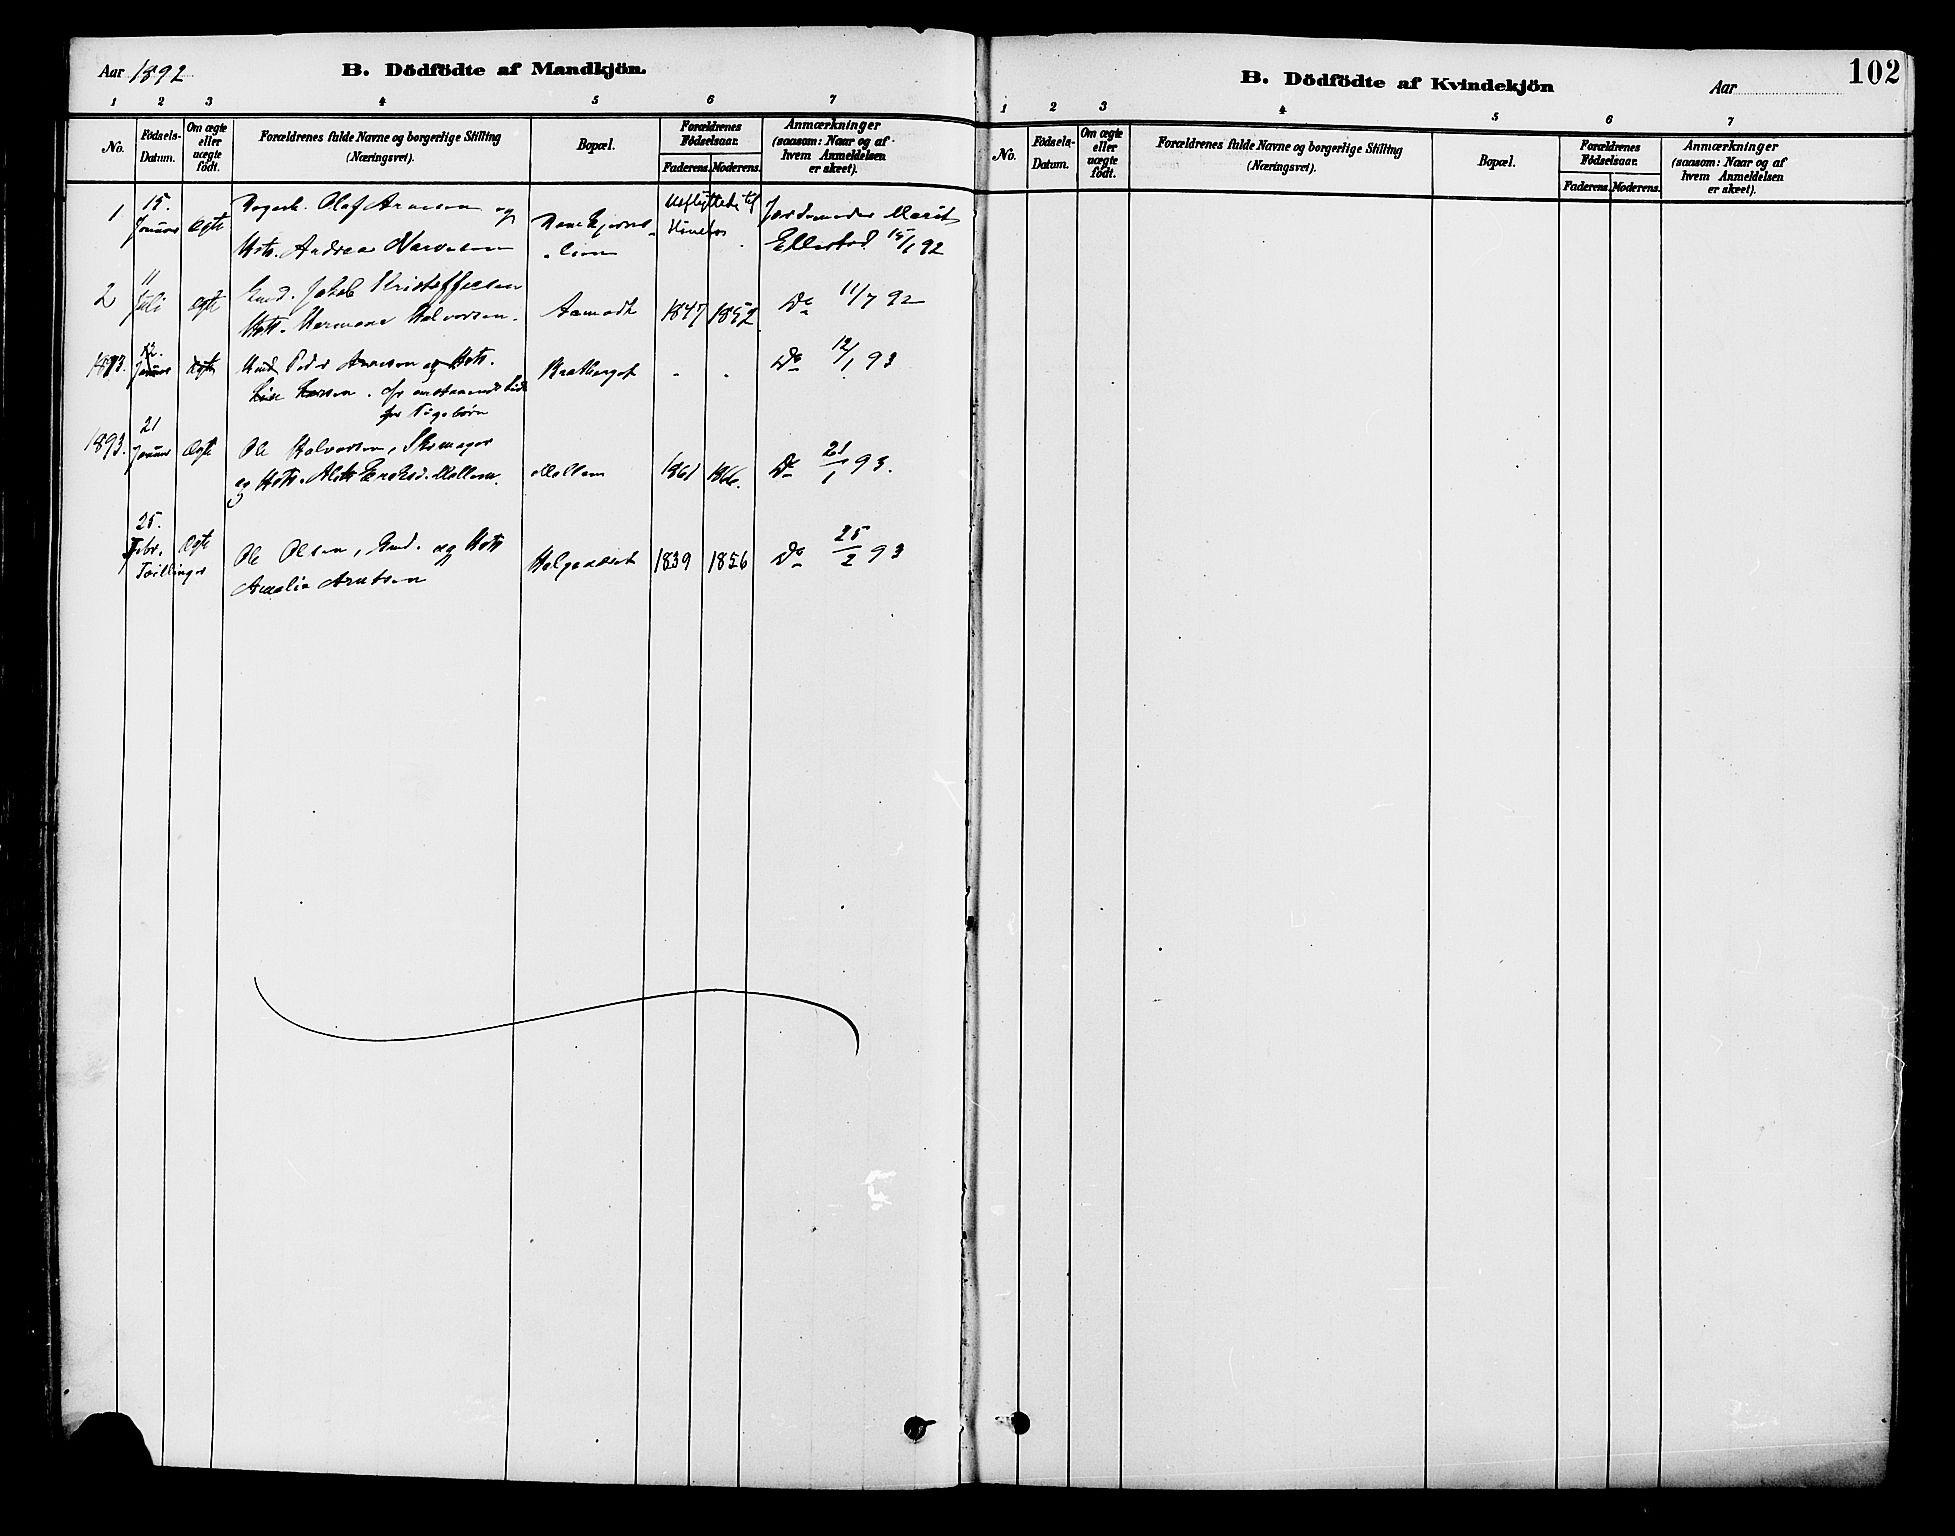 Aar 1892
B. Dödfödte af Mandkjön.
1 2 3 4 5 6 7
No.
Födsels-
Datum.
Om ægte
eller
uægte
födt.
Forældrenes fulde Navne og borgerlige Stilling
(Næringsvei).
Bopæl.
Forældrenes
Födselsaar.
Faderens. Moderens.
Anmærkninger
(saasom: Naar og af
hvem Anmeldelsen
er skeet).
1 15. Januar Ægte
Olaf Arnesen og
Hstr. Andrea
Udflyttede til
Hönefos
Jordmoder Marit
Ellestad 15/1 92
2 11 Juli Ægte
Gmd. Jakob Kristoffersen
Hstr. Hermana Halvorsen.
Aamodt 1847 1852. Do 11/7 92
1893. 12. Januar Ægte
Peder Arnesen og Hstr.
Lise Larsen. cfr omstaaende Side
for Pigebörn
Braatberget - - Do 12/1 93
1893. 21 Januar Ægte
Ole Halvorsen, Skomager
og Hstr. Eriksd. Mollern.
1861 1866. Do 21/1 93.
25. Febr. Ægte
Tvillinger
Ole Olsen, Gmd. og Hstr
Amalia Arntsen
Helgerudeiet 1839 1856 Do 25/2 93
102
B. Dödfödte af Kvindekjön
Aar
1 2 3 4 5 6 7
No.
Födsels-
Datum.
Om ægte
eller
uægte
födt.
Forældrenes fulde Navne og borgerlige Stilling
(Næringsvei).
Bopæl.
Forældrenes
Födselsaar.
Faderens. Moderens.
Anmærkninger
(saasom: Naar og af
hvem Anmeldelsen
er skeet).